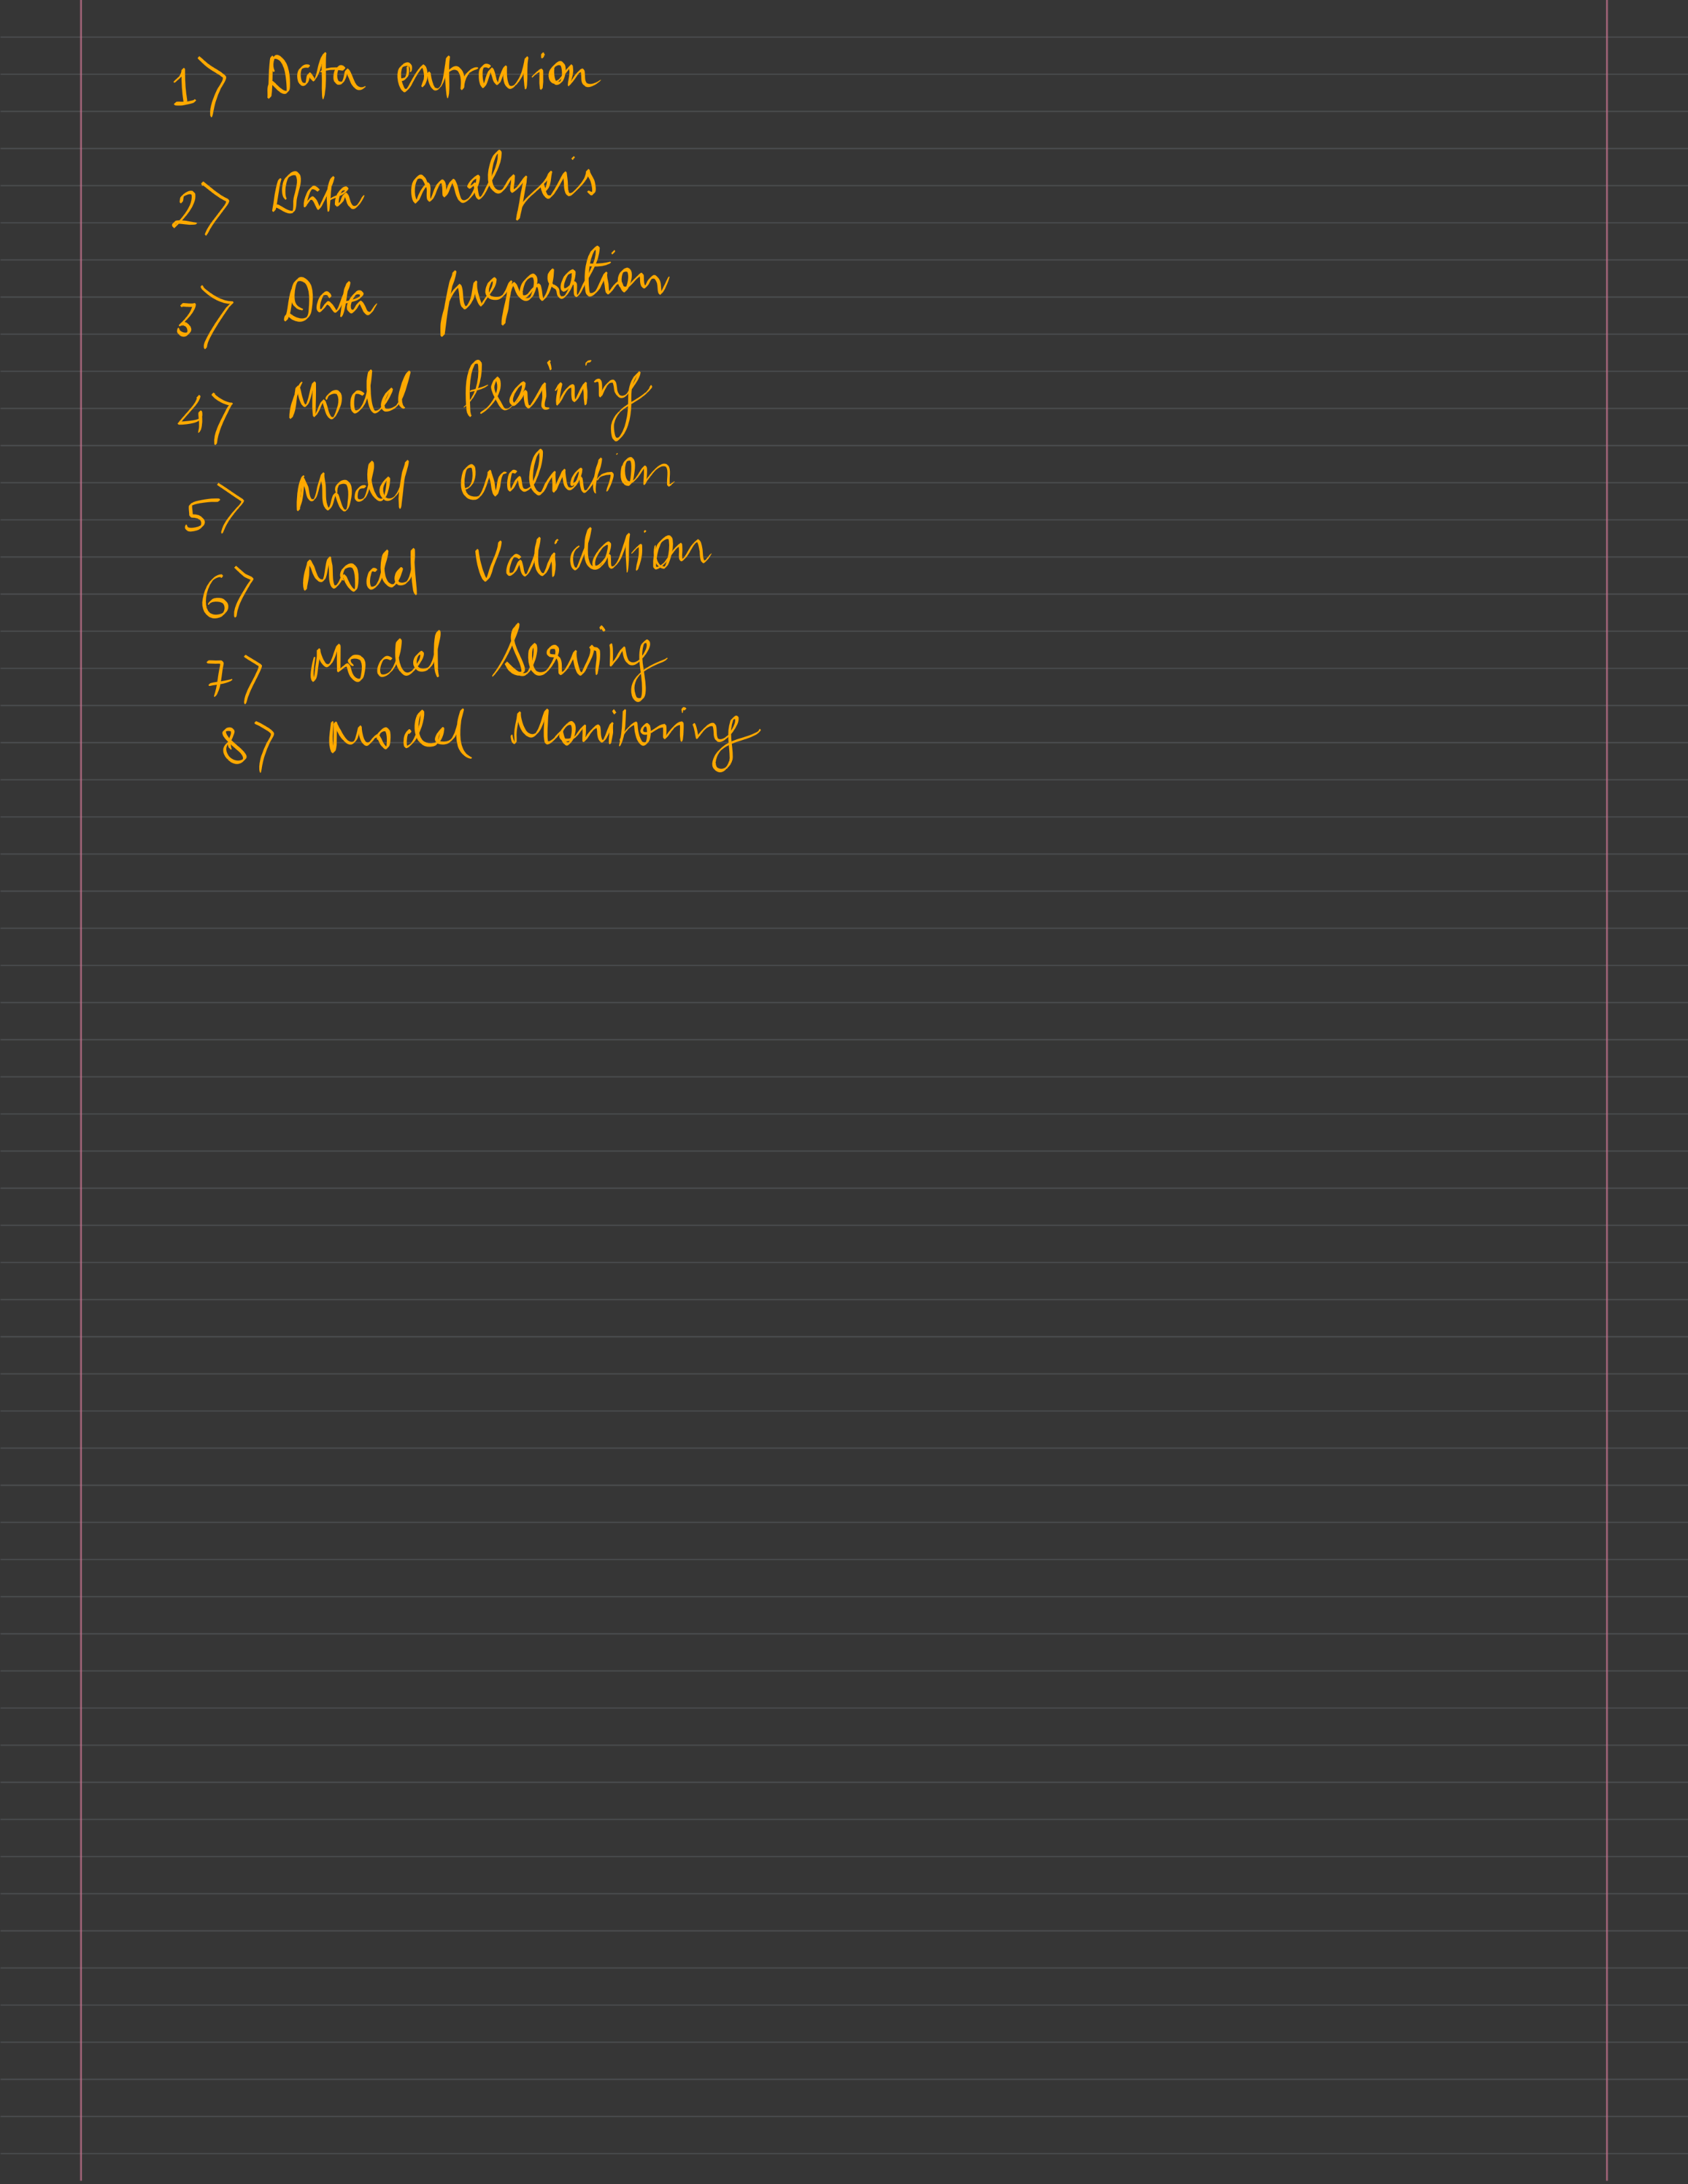 1> Data extraction
2> Data analysis
3> Data preparation
4> Model training
5> Model evaluation
6> Model validation
7> Model Serving
8> Model Monitoring